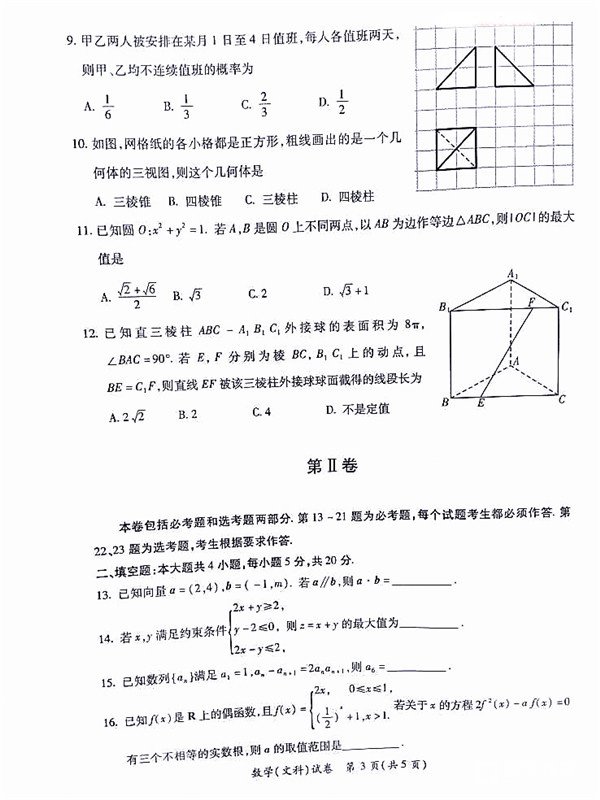 9. 甲乙两人被安排在某月1日至4日值班,每人各值班两天,
则甲、乙均不连续值班的概率为
A. 1/6 B. 1/3 C. 2/3 D. 1/2
10. 如图,网格纸的各小格都是正方形,粗线画出的是一个几
何体的三视图,则这个几何体是
A. 三棱锥 B. 四棱锥 C. 三棱柱 D. 四棱柱
11. 已知圆 O:x²+y²=1. 若 A,B 是圆 O 上不同两点,以 AB 为边作等边△ABC,则|OC|的最大
值是
A. (√2+√6)/2 B. √3 C. 2 D. √3+1
12. 已知直三棱柱 ABC-A₁B₁C₁外接球的表面积为 8π,
∠BAC=90°. 若 E, F 分别为棱 BC, B₁C₁上的动点,且
BE=C₁F,则直线 EF 被该三棱柱外接球球面截得的线段长为
A. 2√2 B. 2 C. 4 D. 不是定值
A₁
B₁ F C₁
A
B E C
第Ⅱ卷
本卷包括必考题和选考题两部分. 第13~21题为必考题,每个试题考生都必须作答. 第
22、23题为选考题,考生根据要求作答.
二、填空题:本大题共4小题,每小题5分,共20分.
13. 已知向量 a=(2,4),b=(-1,m). 若 a∥b,则 a·b=________.
14. 若 x,y 满足约束条件{2x+y≥2, y-2≤0, 2x-y≤2, 则 z=x+y 的最大值为________.
15. 已知数列{aₙ}满足 a₁=1,aₙ-aₙ₊₁=2aₙaₙ₊₁,则 a₆=________.
16. 已知f(x)是 R 上的偶函数,且f(x)={2x, 0≤x≤1, (1/2)ˣ+1,x>1. 若关于 x 的方程 2f²(x)-af(x)=0
有三个不相等的实数根,则 a 的取值范围是________.
数学(文科)试卷 第3页(共5页)